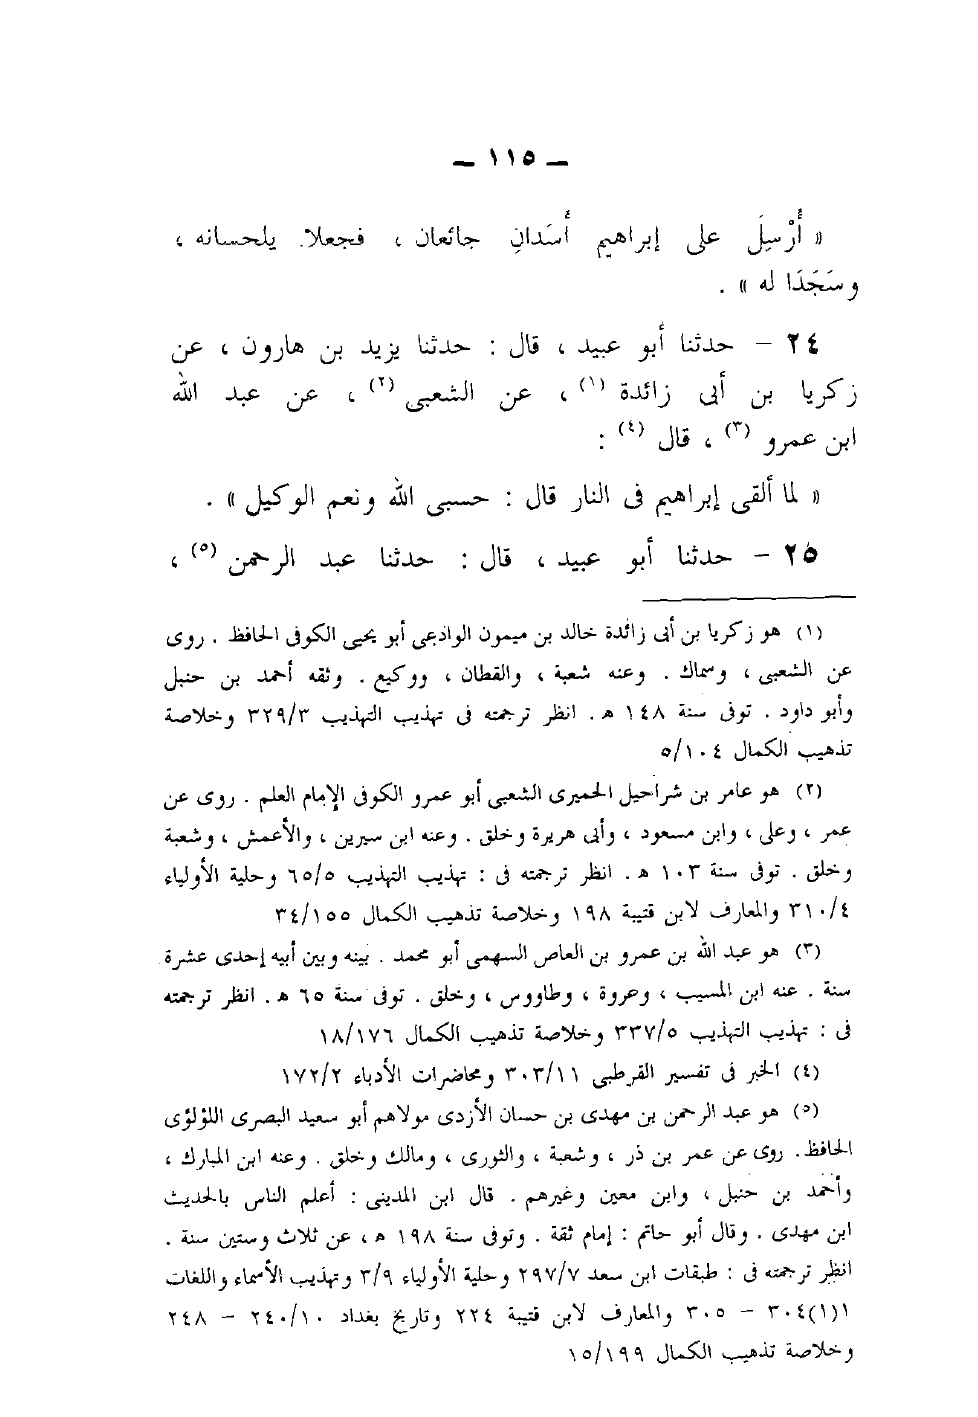 ـ ١١٥ ـ
« أُرْسِلَ على إبراهيم أَسَدانِ جائعان ، فجعلا يلحسانه ،
وسَجَدَا له » .
٢٤ – حدثنا أبو عبيد ، قال : حدثنا يزيد بن هارون ، عن
زكريا بن أبى زائدة (١) ، عن الشعبى (٢) ، عن عبد الله
ابن عمرو (٣) ، قال (٤) :
« لما ألقى إبراهيم فى النار قال : حسبى الله ونعم الوكيل » .
٢٥ – حدثنا أبو عبيد ، قال : حدثنا عبد الرحمن (٥) ،
(١) هو زكريا بن أبى زائدة خالد بن ميمون الوادعى أبو يحيى الكوفى الحافظ . روى
عن الشعبى ، وسماك . وعنه شعبة ، والقطان ، ووكيع . وثقه أحمد بن حنبل
وأبو داود . توفى سنة ١٤٨ هـ . انظر ترجمته فى تهذيب التهذيب ٣٢٩/٣ وخلاصة
تذهيب الكمال ٥/١٠٤
(٢) هو عامر بن شراحيل الحميرى الشعبى أبو عمرو الكوفى الإمام العلم . روى عن
عمر ، وعلى ، وابن مسعود ، وأبى هريرة وخلق . وعنه ابن سيرين ، والأعمش ، وشعبة
وخلق . توفى سنة ١٠٣ هـ . انظر ترجمته فى : تهذيب التهذيب ٦٥/٥ وحلية الأولياء
٣١٠/٤ والمعارف لابن قتيبة ١٩٨ وخلاصة تذهيب الكمال ٣٤/١٥٥
(٣) هو عبد الله بن عمرو بن العاص السهمى أبو محمد . بينه وبين أبيه إحدى عشرة
سنة . عنه ابن المسيب ، وعروة ، وطاووس ، وخلق . توفى سنة ٦٥ هـ . انظر ترجمته
فى : تهذيب التهذيب ٣٣٧/٥ وخلاصة تذهيب الكمال ١٨/١٧٦
(٤) الخبر فى تفسير القرطبى ٣٠٣/١١ ومحاضرات الأدباء ١٧٢/٢
(٥) هو عبد الرحمن بن مهدى بن حسان الأزدى مولاهم أبو سعيد البصرى اللؤلؤى
الحافظ . روى عن عمر بن ذر ، وشعبة ، والثورى ، ومالك وخلق . وعنه ابن المبارك ،
وأحمد بن حنبل ، وابن معين وغيرهم . قال ابن المدينى : أعلم الناس بالحديث
ابن مهدى . وقال أبو حاتم : إمام ثقة . وتوفى سنة ١٩٨ هـ ، عن ثلاث وستين سنة .
انظر ترجمته فى : طبقات ابن سعد ٢٩٧/٧ وحلية الأولياء ٣/٩ وتهذيب الأسماء واللغات
١(١)٣٠٤ – ٣٠٥ والمعارف لابن قتيبة ٢٢٤ وتاريخ بغداد ٢٤٠/١٠ – ٢٤٨
وخلاصة تذهيب الكمال ١٥/١٩٩